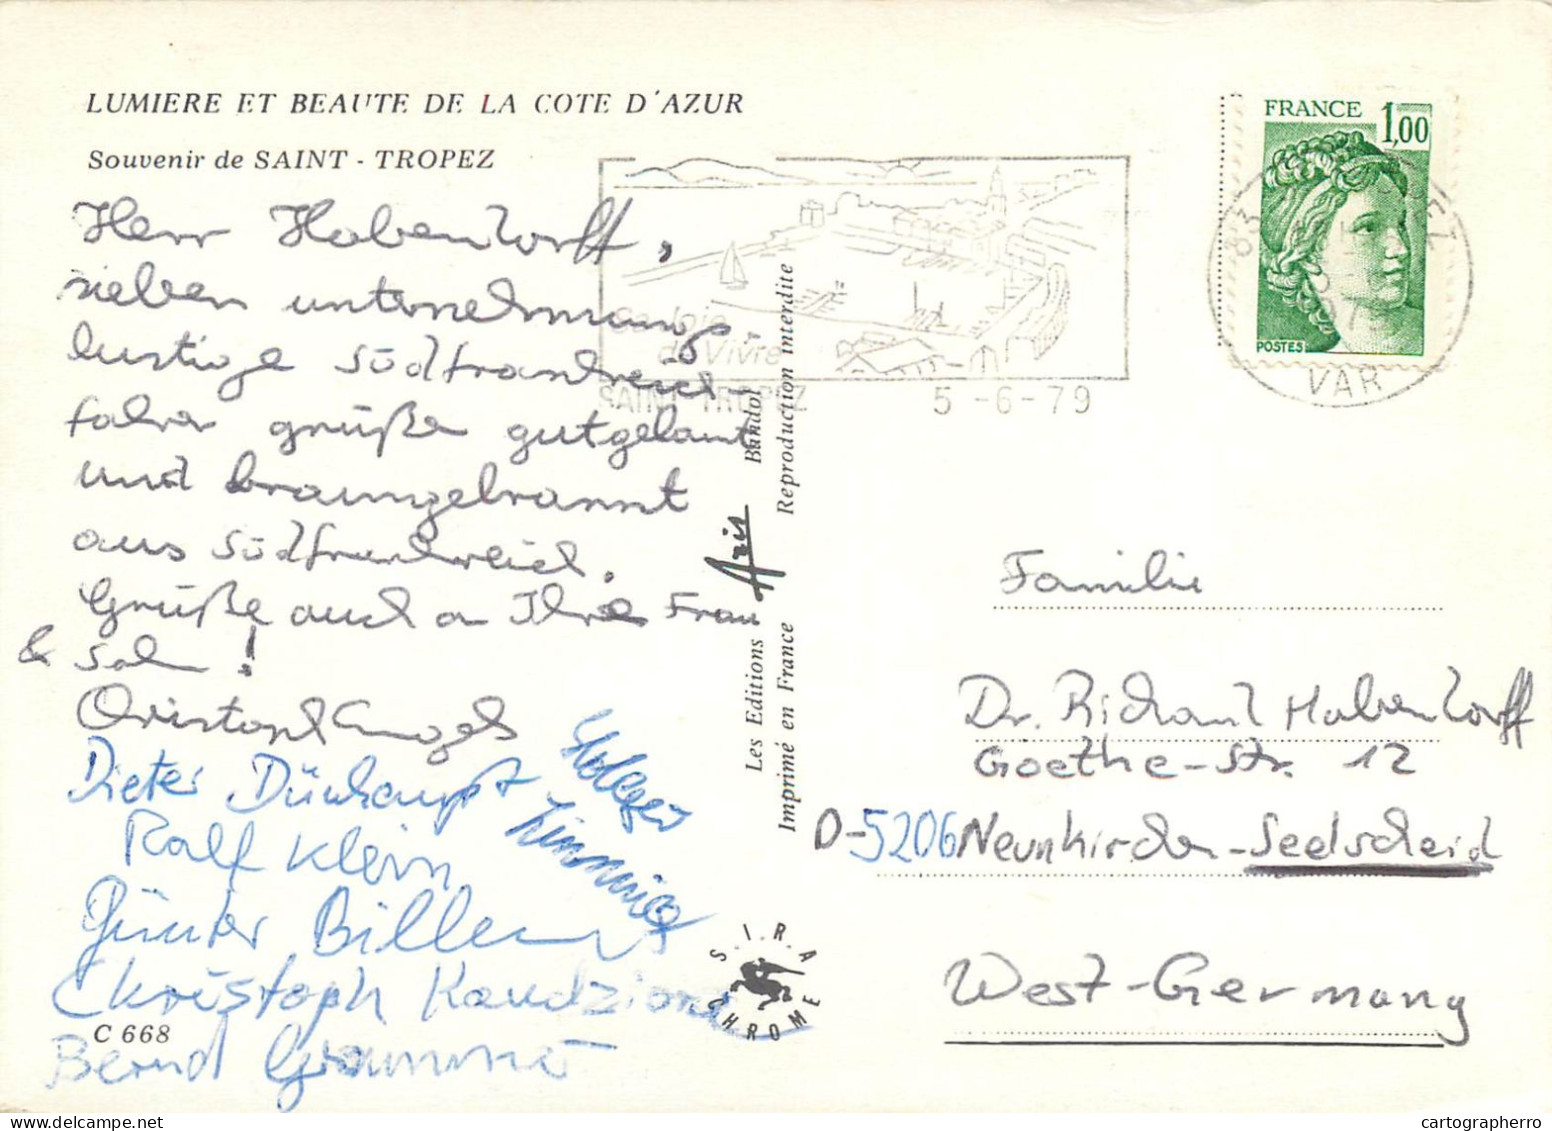 LUMIERE ET BEAUTE DE LA COTE D'AZUR
Souvenir de SAINT - TROPEZ
Herr Habendorff,
sieben unternehmungs-
lustige Südfrankreich-
fahrer grüßen gutgelaunt
und braungebrannt
aus Südfrankreich.
Grüße auch an Ihre Frau
& Sohn!
Christoph Engels
Dieter Dünhaupt
Holger
Zimmnick
Ralf Klein
Günter Billen
Christoph Kaudzion
Bernd
C 668
Les Editions Aris Bandol
Imprimé en France Reproduction interdite
S.I.R.A
CHROME
Sa Joie
de Vivre
SAINT TROPEZ 5 -6-79
FRANCE 1,00
POSTES
83 PEZ
VAR
Familie
Dr. Richard Habendorff
Goethe-Str. 12
D-5206 Neunkirchen-Seelscheid
West-Germany
cartographerro
delcampe.net